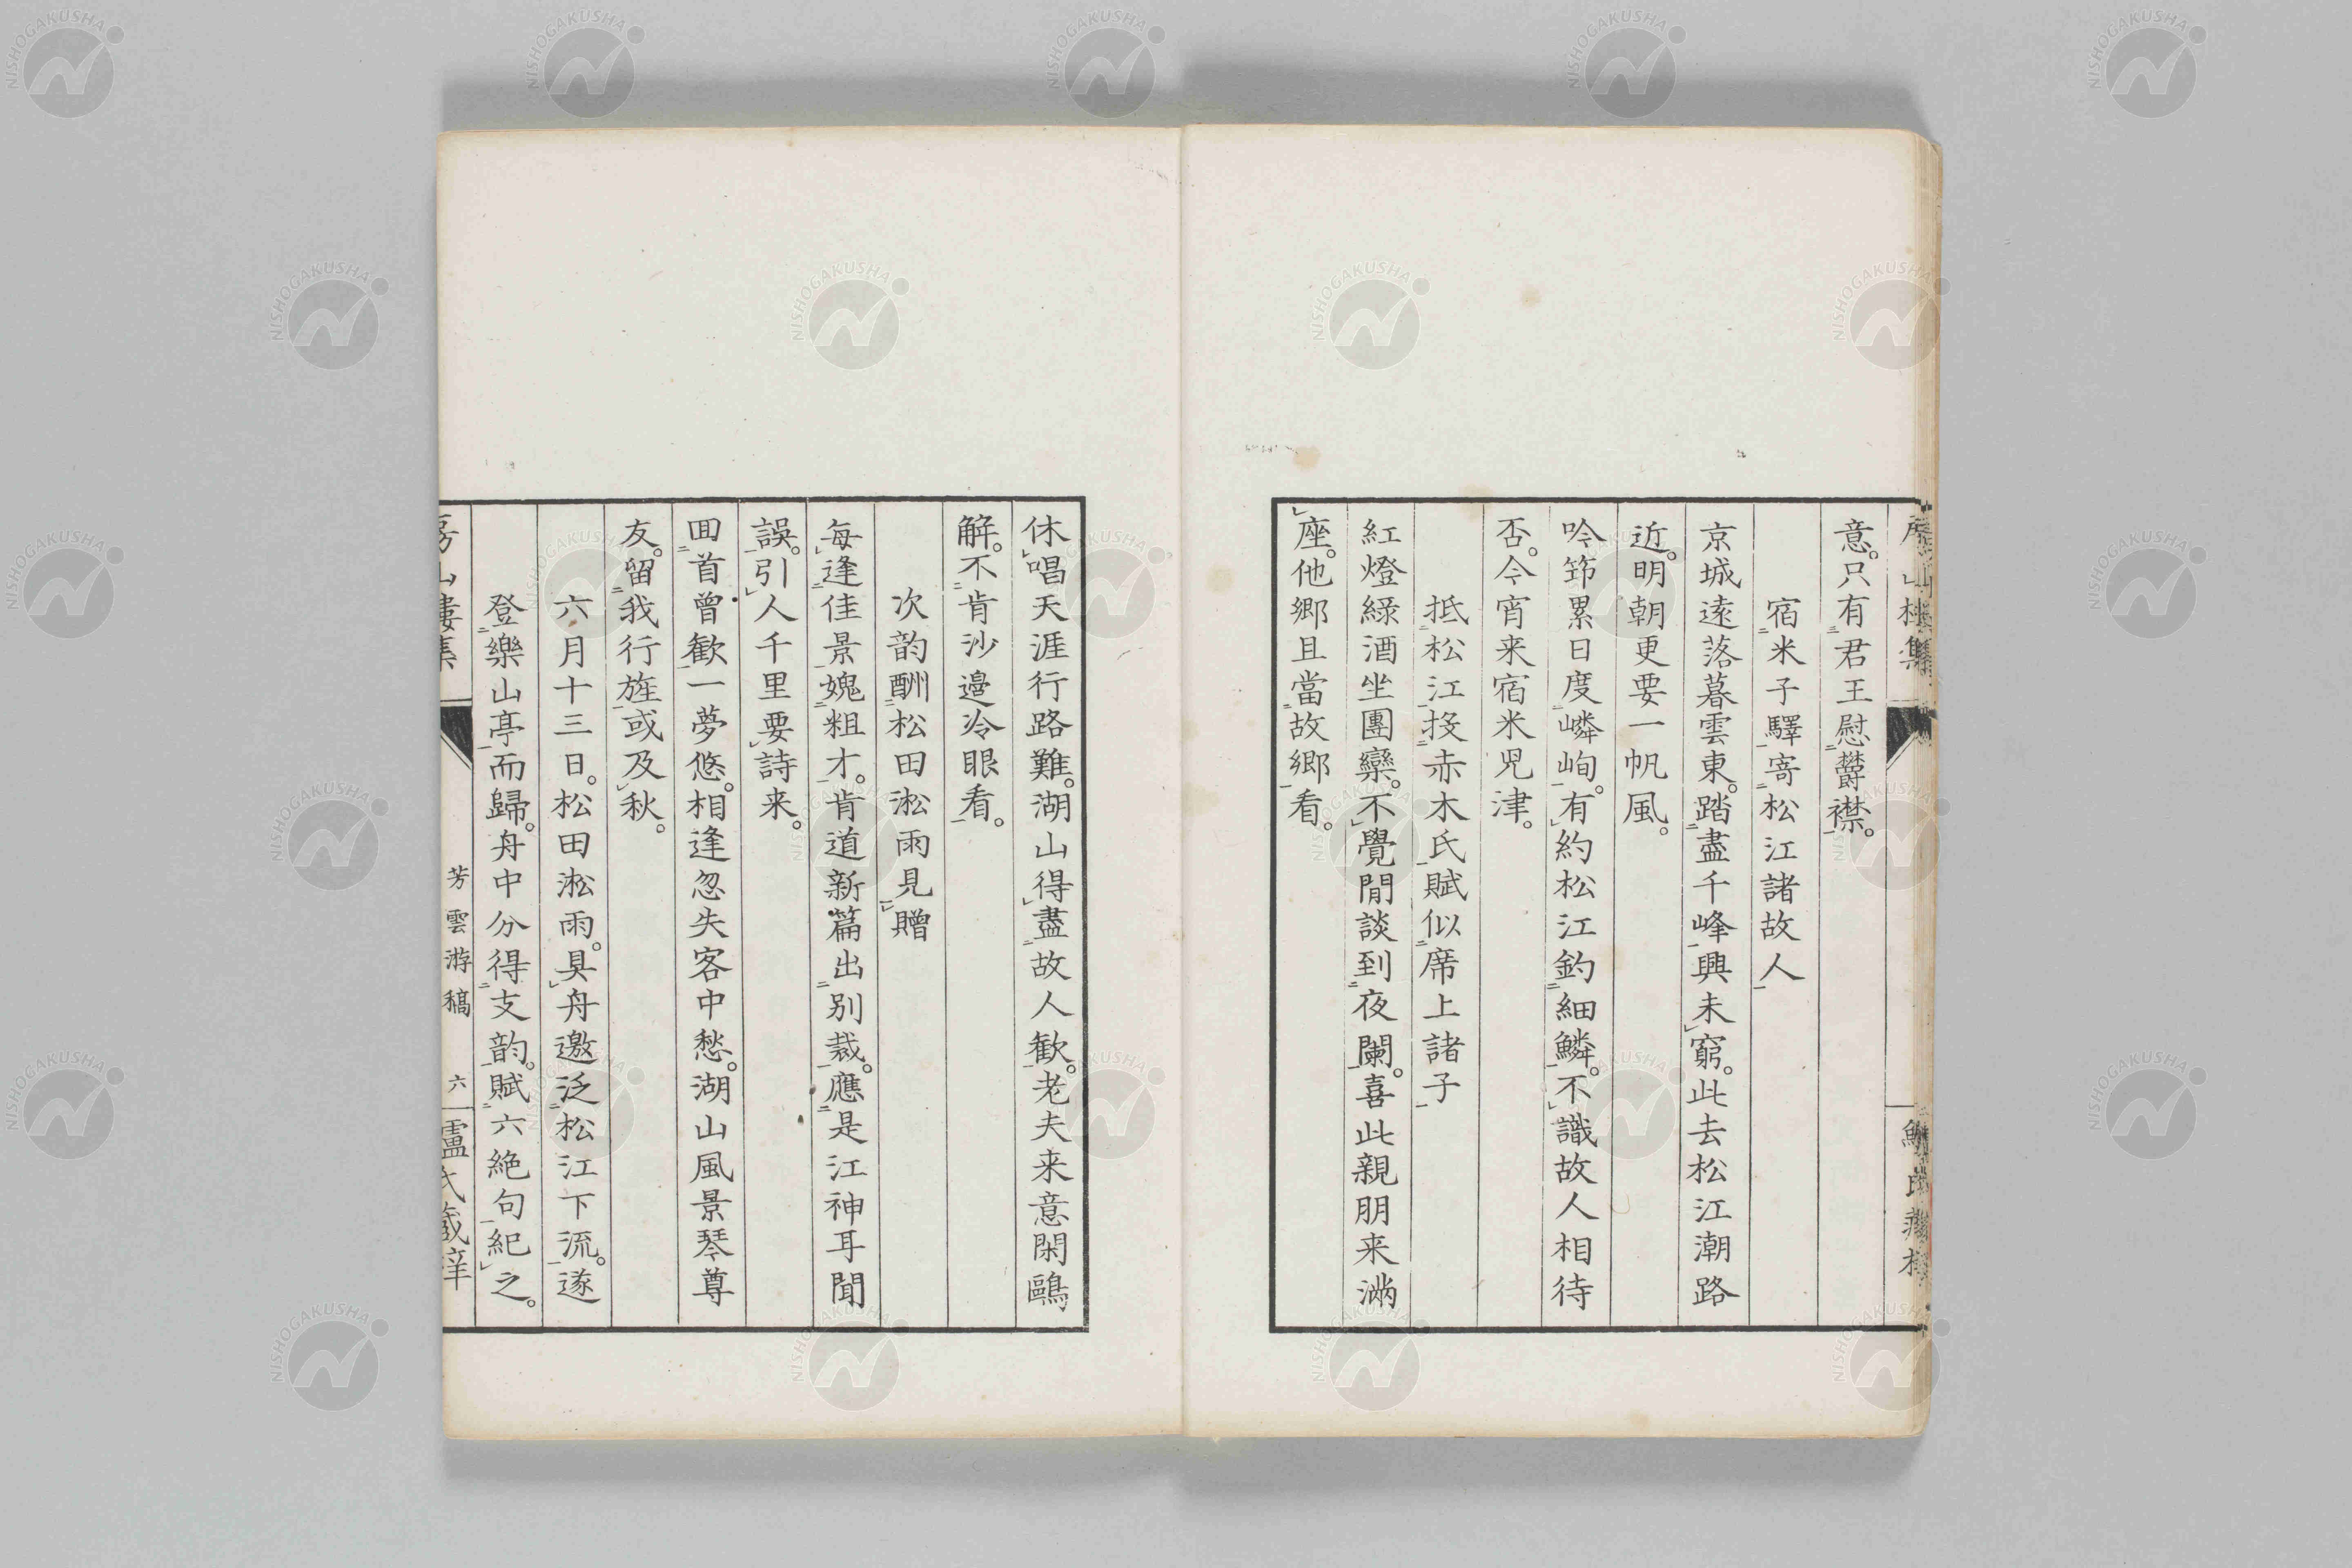 意。只有君王慰欝襟。
宿米子驛寄松江諸故人
京城遠落暮雲東。踏盡千峰興未窮。此去松江潮路
近。明朝更要一帆風。
吟筇累日度嶙峋。有約松江釣細鱗。不識故人相待
否。今宵来宿米児津。
抵松江投赤木氏賦似席上諸子
紅燈緑酒坐團欒。不覺閒談到夜闌。喜此親朋来滿
座。他郷且當故郷看。
休唱天涯行路難。湖山得盡故人歓。老夫来意閑鷗
解。不肯沙邉冷眼看。
次韵酬松田淞雨見贈
每逢佳景媿粗才。肯道新篇出別裁。應是江神耳聞
誤。引人千里要詩来。
囬首曾歓一夢悠。相逢忽失客中愁。湖山風景琴尊
友。留我行旌或及秋。
六月十三日。松田淞雨。具舟邀泛松江下流。遂
登樂山亭而歸。舟中分得支韵。賦六絶句紀之。
芳雲游稿 六
NISHOGAKUSHA